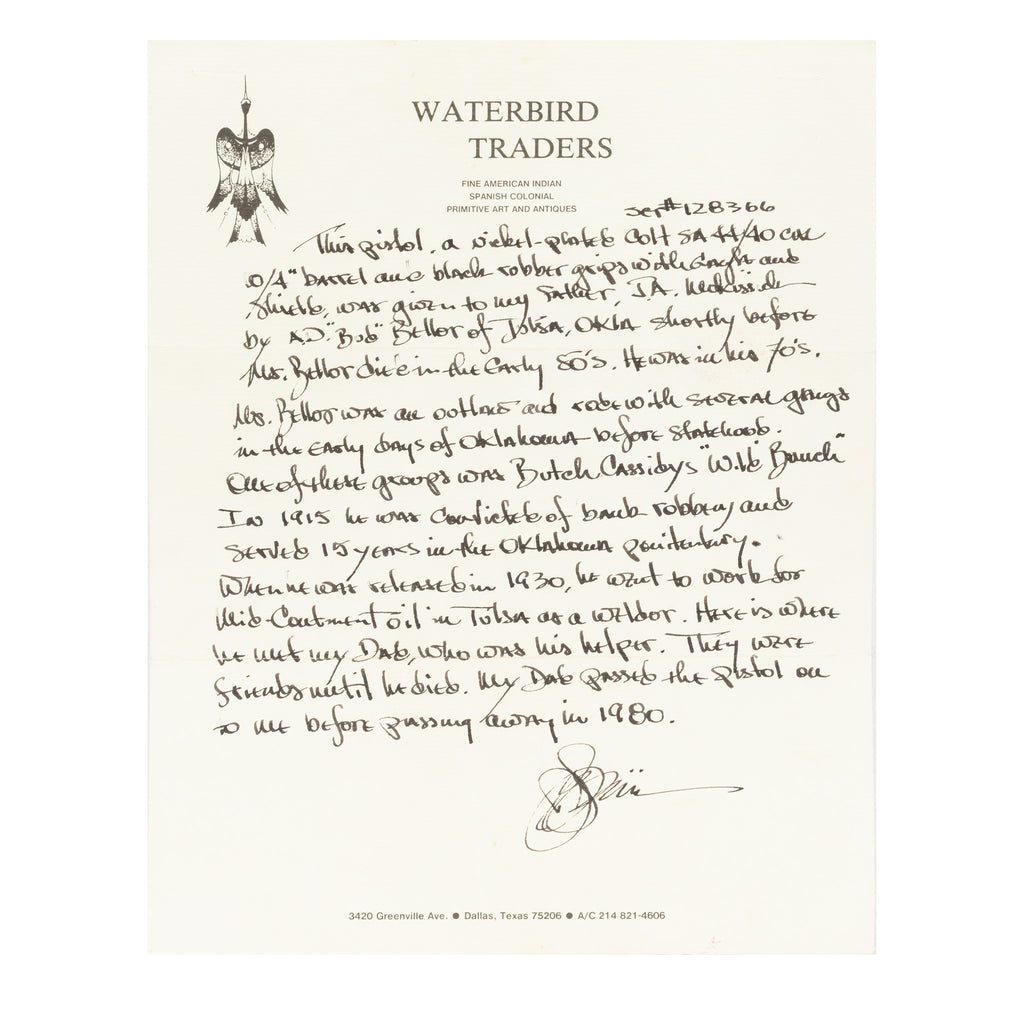 WATERBIRD
TRADERS
FINE AMERICAN INDIAN
SPANISH COLONIAL
PRIMITIVE ART AND ANTIQUES
ser# 128366
This pistol, a nickel-plated Colt SA 44/40 cal
w/4" barrel and black rubber grips with Eagle and
Shield, was given to my father, J.A.
by A.D. "Bob" Bellor of Tulsa, Okla shortly before
Mr. Bellor died in the early 50's. He was in his 70's.
Mr. Bellor was an outlaw and rode with several gangs
in the early days of Oklahoma before statehood.
One of these groups was Butch Cassidys "Wild Bunch"
In 1915 he was convicted of bank robbery and
served 15 years in the Oklahoma penitentury.
When he was released in 1930, he went to work for
Mid-Continent oil in Tulsa as a weldor. Here is where
he met my Dad, who was his helper. They were
friends until he died. My Dad passed the pistol on
to me before passing away in 1980.
3420 Greenville Ave. ● Dallas, Texas 75206 ● A/C 214 821-4606